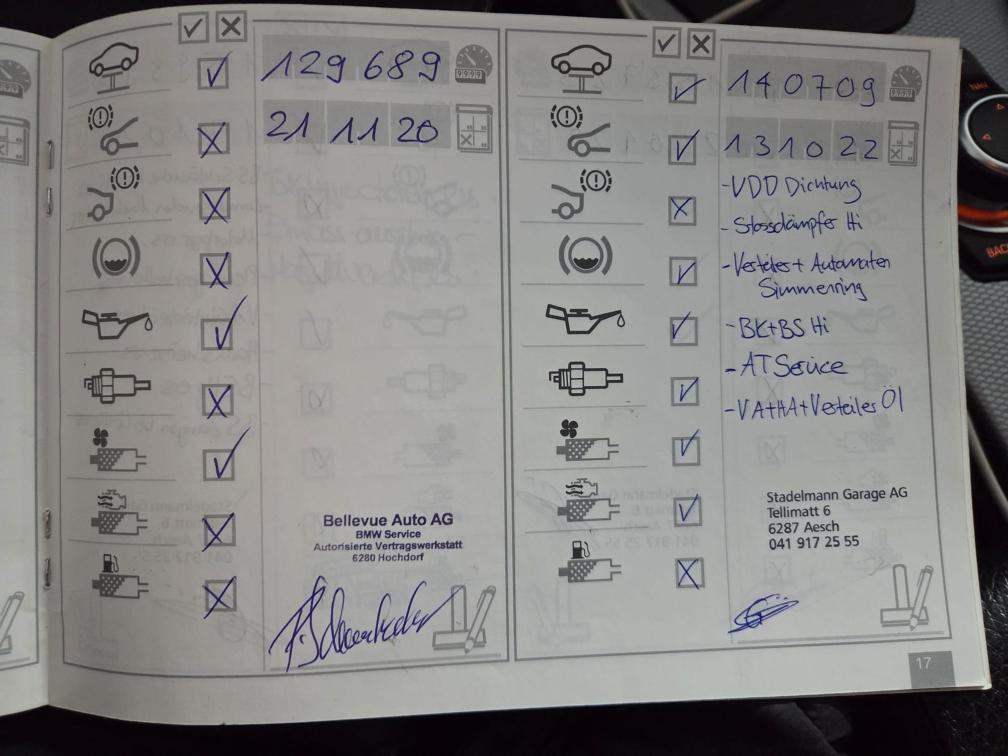 129 689
21 11 20
Bellevue Auto AG
BMW Service
Autorisierte Vertragswerkstatt
6280 Hochdorf
140709
131022
- VDD Dichtung
- Stossdämpfer Hi
- Verteiler + Automaten
Simmerring
- BK+BS Hi
- AT Service
- VA+HA+Verteiler Öl
Stadelmann Garage AG
Tellimatt 6
6287 Aesch
041 917 25 55
17
NAV
BAC